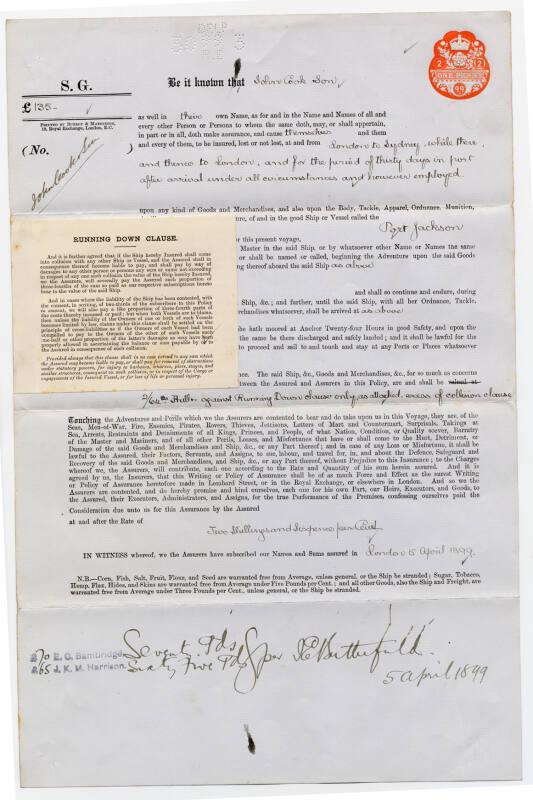 S. G.
Be it known that John Cook Son
2 12
ONE PENNY
99
£135-
PRINTED BY
10, Royal Exchange, London, E.C.
as well in their own Name, as for and in the Name and Names of all and
every other Person or Persons to whom the same doth, may, or shall appertain,
in part or in all, doth make assurance, and cause themselves and them
(No.
and every of them, to be insured, lost or not lost, at and from London to Sydney, while there
and thence to London, and for the period of thirty days in port
after arrival under all circumstances and however employed.
John Cook & Son
upon any kind of Goods and Merchandises, and also upon the Body, Tackle, Apparel, Ordnance, Munition,
ure, of and in the good Ship or Vessel called the
Port Jackson
for this present voyage,
Master in the said Ship, or by whatsoever other Name or Names the same
or shall be named or called, beginning the Adventure upon the said Goods
ing thereof aboard the said Ship as above
RUNNING DOWN CLAUSE.
And it is further agreed that if the Ship hereby Insured shall come
into collision with any other Ship or Vessel, and the Assured shall in
consequence thereof become liable to pay, and shall pay by way of
damages to any other person or persons any sum or sums not exceeding
in respect of any one such collision the value of the Ship hereby Insured,
we the Assurers, will severally pay the Assured such proportion of
three-fourths of the sum so paid as our respective subscriptions hereto
bear to the value of the said Ship.
And in cases where the liability of the Ship has been contested, with
the consent, in writing, of two-thirds of the subscribers to this Policy
in amount, we will also pay a like proportion of three-fourth parts of
the costs thereby incurred or paid; but when both Vessels are to blame,
then unless the liability of the Owners of one or both of such Vessels
becomes limited by law, claims under this clause shall be settled on the
principle of cross-liabilities as if the Owners of each Vessel had been
compelled to pay to the Owners of the other of such Vessels such
one-half or other proportion of the latter's damages as may have been
properly allowed in ascertaining the balance or sum payable by or to
the Assured in consequence of such collision.
Provided always that this clause shall in no case extend to any sum which
the Assured may become liable to pay, or shall pay for removal of obstructions
under statutory powers, for injury to harbours, wharves, piers, stages, and
similar structures, consequent on such collision, or in respect of the Cargo or
engagements of the Assured Vessel, or for loss of life or personal injury.
and shall so continue and endure, during
Ship, &c.; and further, until the said Ship, with all her Ordnance, Tackle,
rchandises whatsoever, shall be arrived at as above
he hath moored at Anchor Twenty-four Hours in good Safety, and upon the
the same be there discharged and safely landed; and it shall be lawful for the
to proceed and sail to and touch and stay at any Ports or Places whatsoever
nce. The said Ship, &c., Goods and Merchandises, &c., for so much as concerns
tween the Assured and Assurers in this Policy, are and shall be valued at
against Running Down clause only, as attached, excess of collision clause
Touching the Adventures and Perils which we the Assurers are contented to bear and do take upon us in this Voyage, they are, of the
Seas, Men-of-War, Fire, Enemies, Pirates, Rovers, Thieves, Jettisons, Letters of Mart and Countermart, Surprisals, Takings at
Sea, Arrests, Restraints and Detainments of all Kings, Princes, and People, of what Nation, Condition, or Quality soever, Barratry
of the Master and Mariners, and of all other Perils, Losses, and Misfortunes that have or shall come to the Hurt, Detriment, or
Damage of the said Goods and Merchandises and Ship, &c., or any Part thereof; and in case of any Loss or Misfortune, it shall be
lawful to the Assured, their Factors, Servants, and Assigns, to sue, labour, and travel for, in, and about the Defence, Safeguard and
Recovery of the said Goods and Merchandises, and Ship, &c., or any Part thereof, without Prejudice to this Insurance; to the Charges
whereof we, the Assurers, will contribute, each one according to the Rate and Quantity of his sum herein assured. And it is
agreed by us, the Insurers, that this Writing or Policy of Assurance shall be of as much Force and Effect as the surest Writing
or Policy of Assurance heretofore made in Lombard Street, or in the Royal Exchange, or elsewhere in London. And so we the
Assurers are contented, and do hereby promise and bind ourselves, each one for his own Part, our Heirs, Executors, and Goods, to
the Assured, their Executors, Administrators, and Assigns, for the true Performance of the Premises, confessing ourselves paid the
Consideration due unto us for this Assurance by the Assured
at and after the Rate of
Two Shillings and Sixpence per Cent
IN WITNESS whereof, we the Assurers have subscribed our Names and Sums assured in London 5 April 1899
N.B.—Corn, Fish, Salt, Fruit, Flour, and Seed are warranted free from Average, unless general, or the Ship be stranded; Sugar, Tobacco,
Hemp, Flax, Hides, and Skins are warranted free from Average under Five Pounds per Cent.; and all other Goods, also the Ship and Freight, are
warranted free from Average under Three Pounds per Cent., unless general, or the Ship be stranded.
£70 E. G. Bambridge, Seventy Pds
£65 J. K. M. Harrison. Sixty Five Pds per Butterfield.
5 April 1899